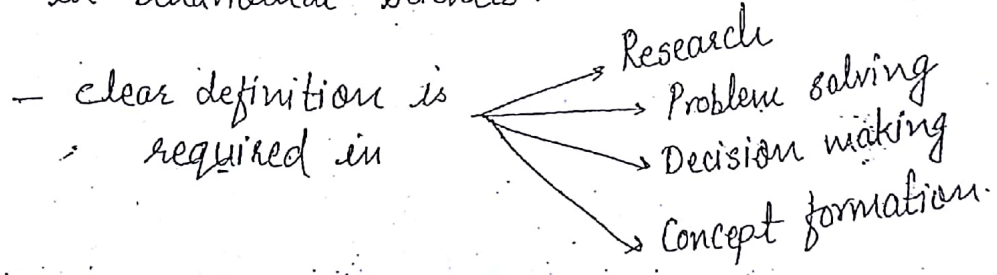 in
- clear definition is required in
Research
Problem solving
Decision making
Concept formation.